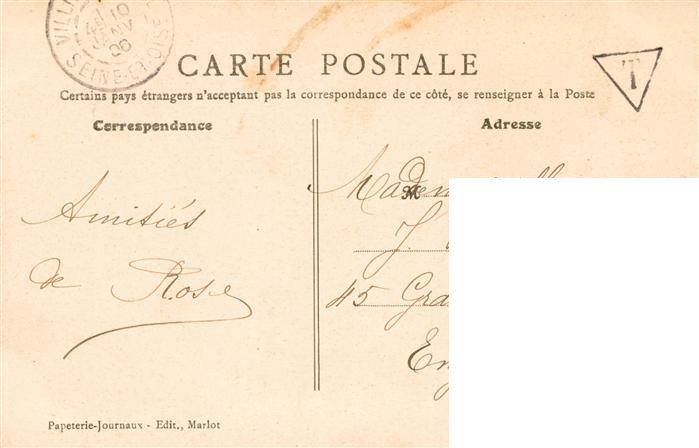 VILLI
4E 10
JANV
06
SEINE-ET-OISE
CARTE POSTALE
T
Certains pays étrangers n'acceptant pas la correspondance de ce côté, se renseigner à la Poste
Correspondance
Adresse
Amitiés
de Rose
M
J.
45
Papeterie-Journaux - Edit., Marlot